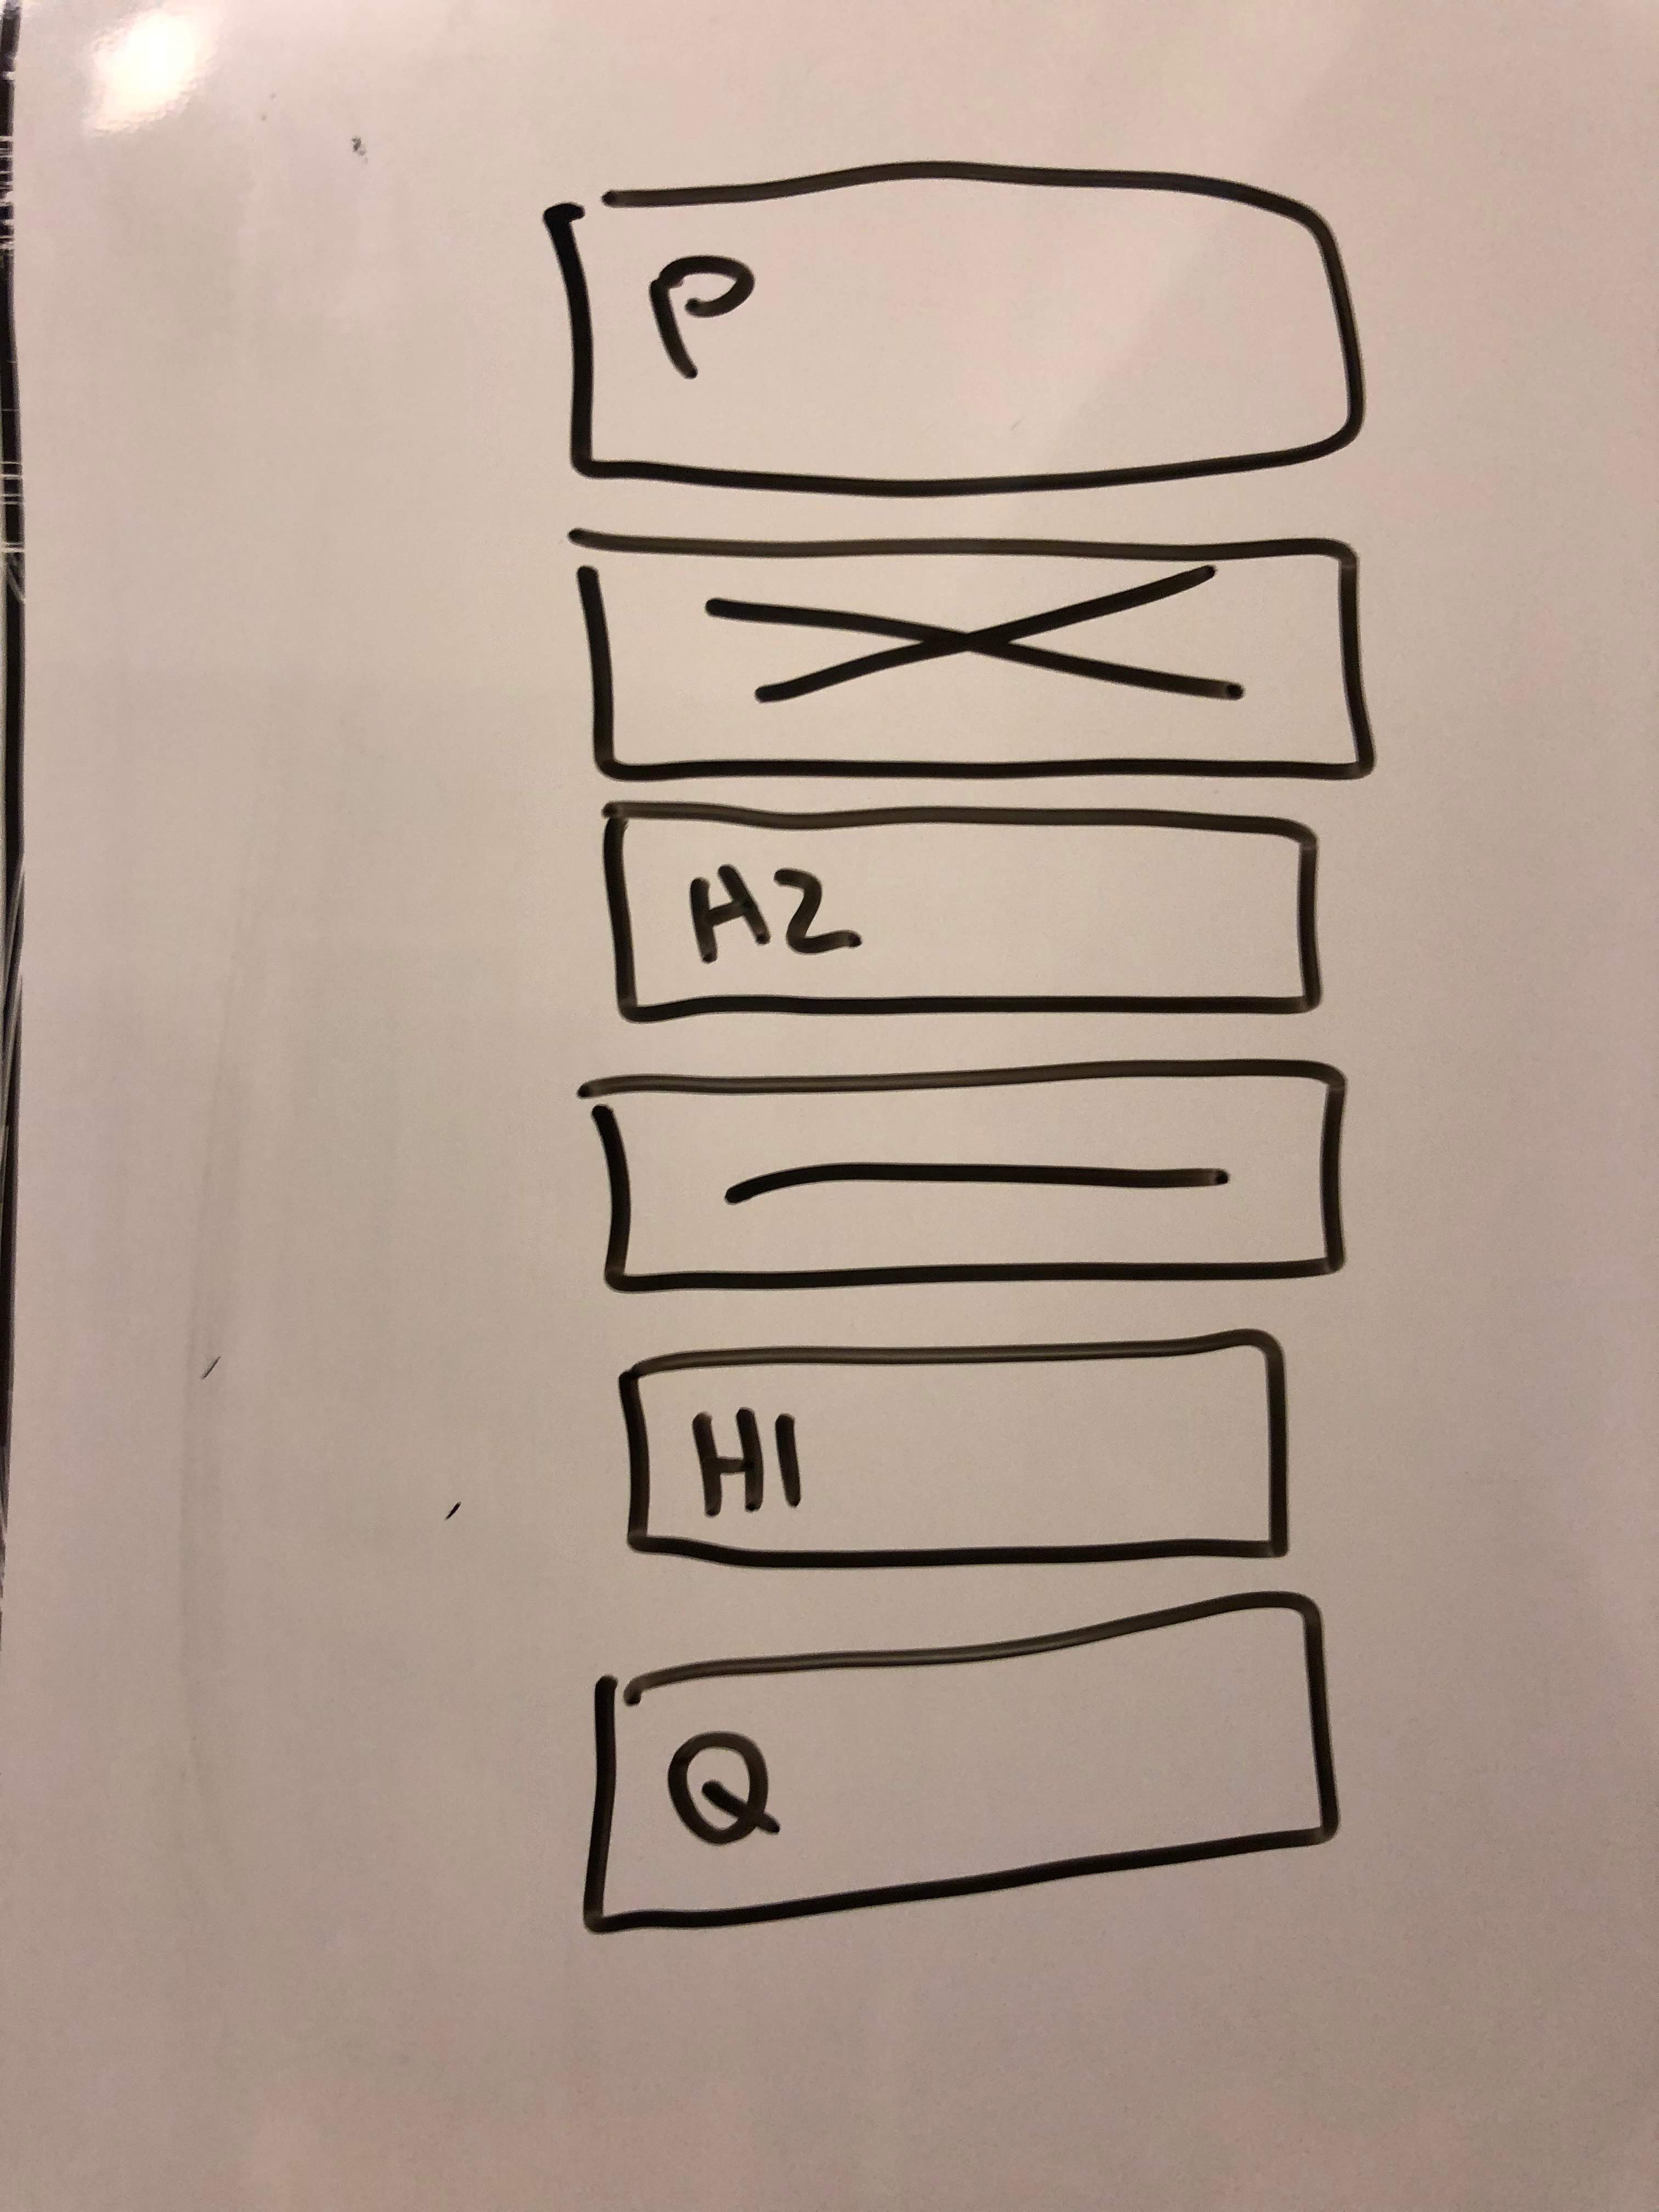 P
H2
H1
Q